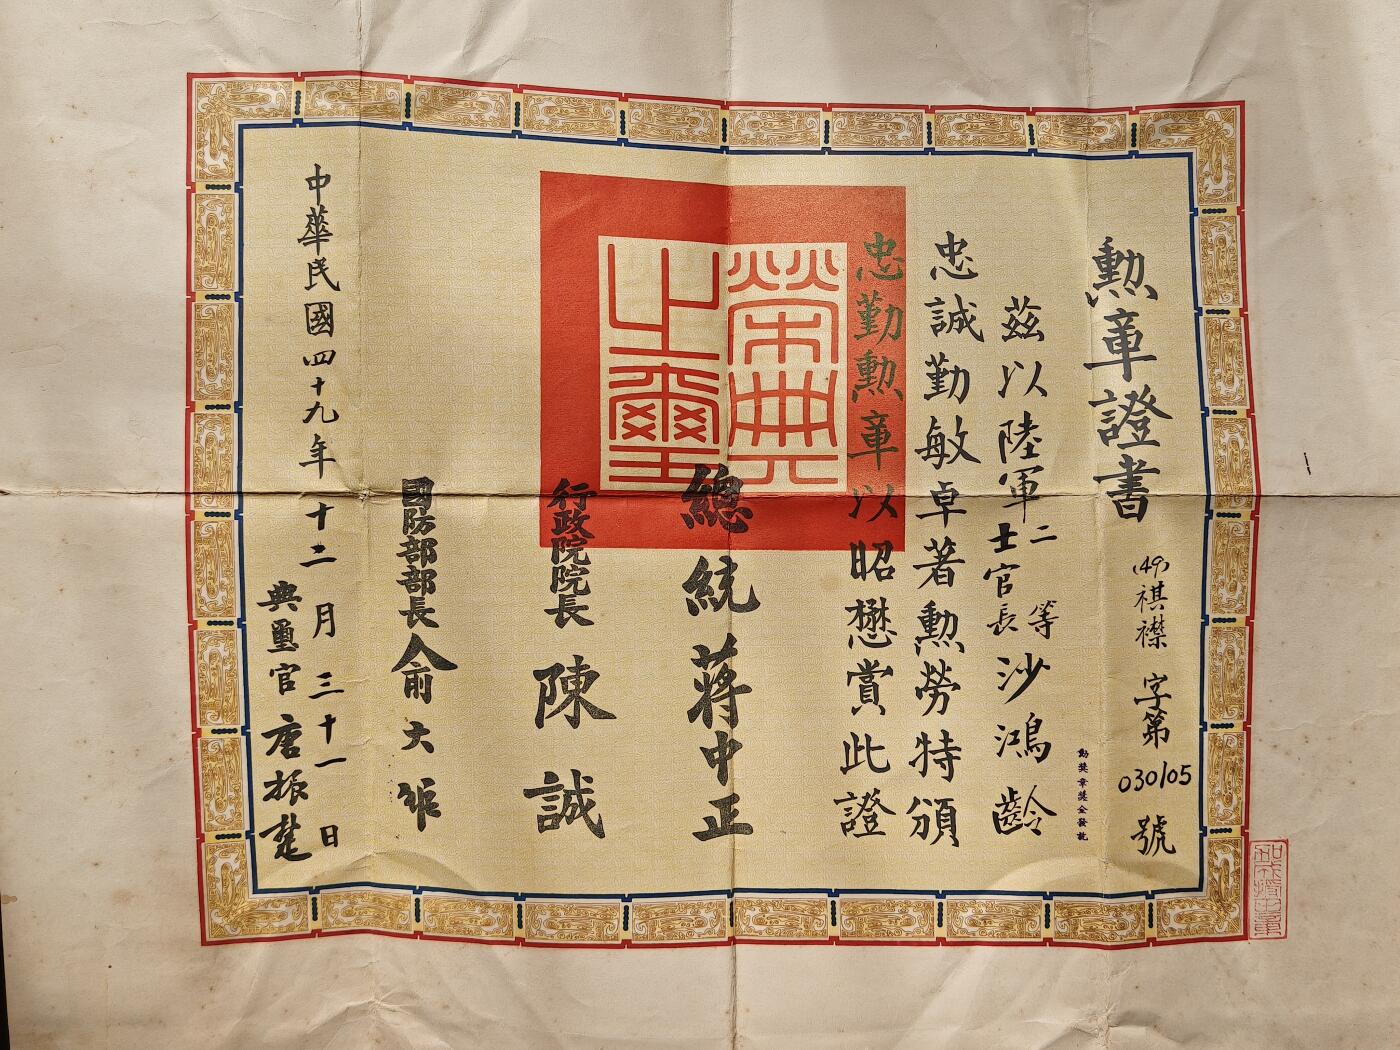 勳章證書
(49)祺襟字第030105號
勳獎章獎金發訖
茲以陸軍二等士官長沙鴻齡
忠誠勤敏卓著勳勞特頒
忠勤勳章以昭懋賞此證
榮典之璽
總統蔣中正
行政院院長陳誠
國防部部長俞大維
中華民國四十九年十二月三十一日
典璽官唐振楚